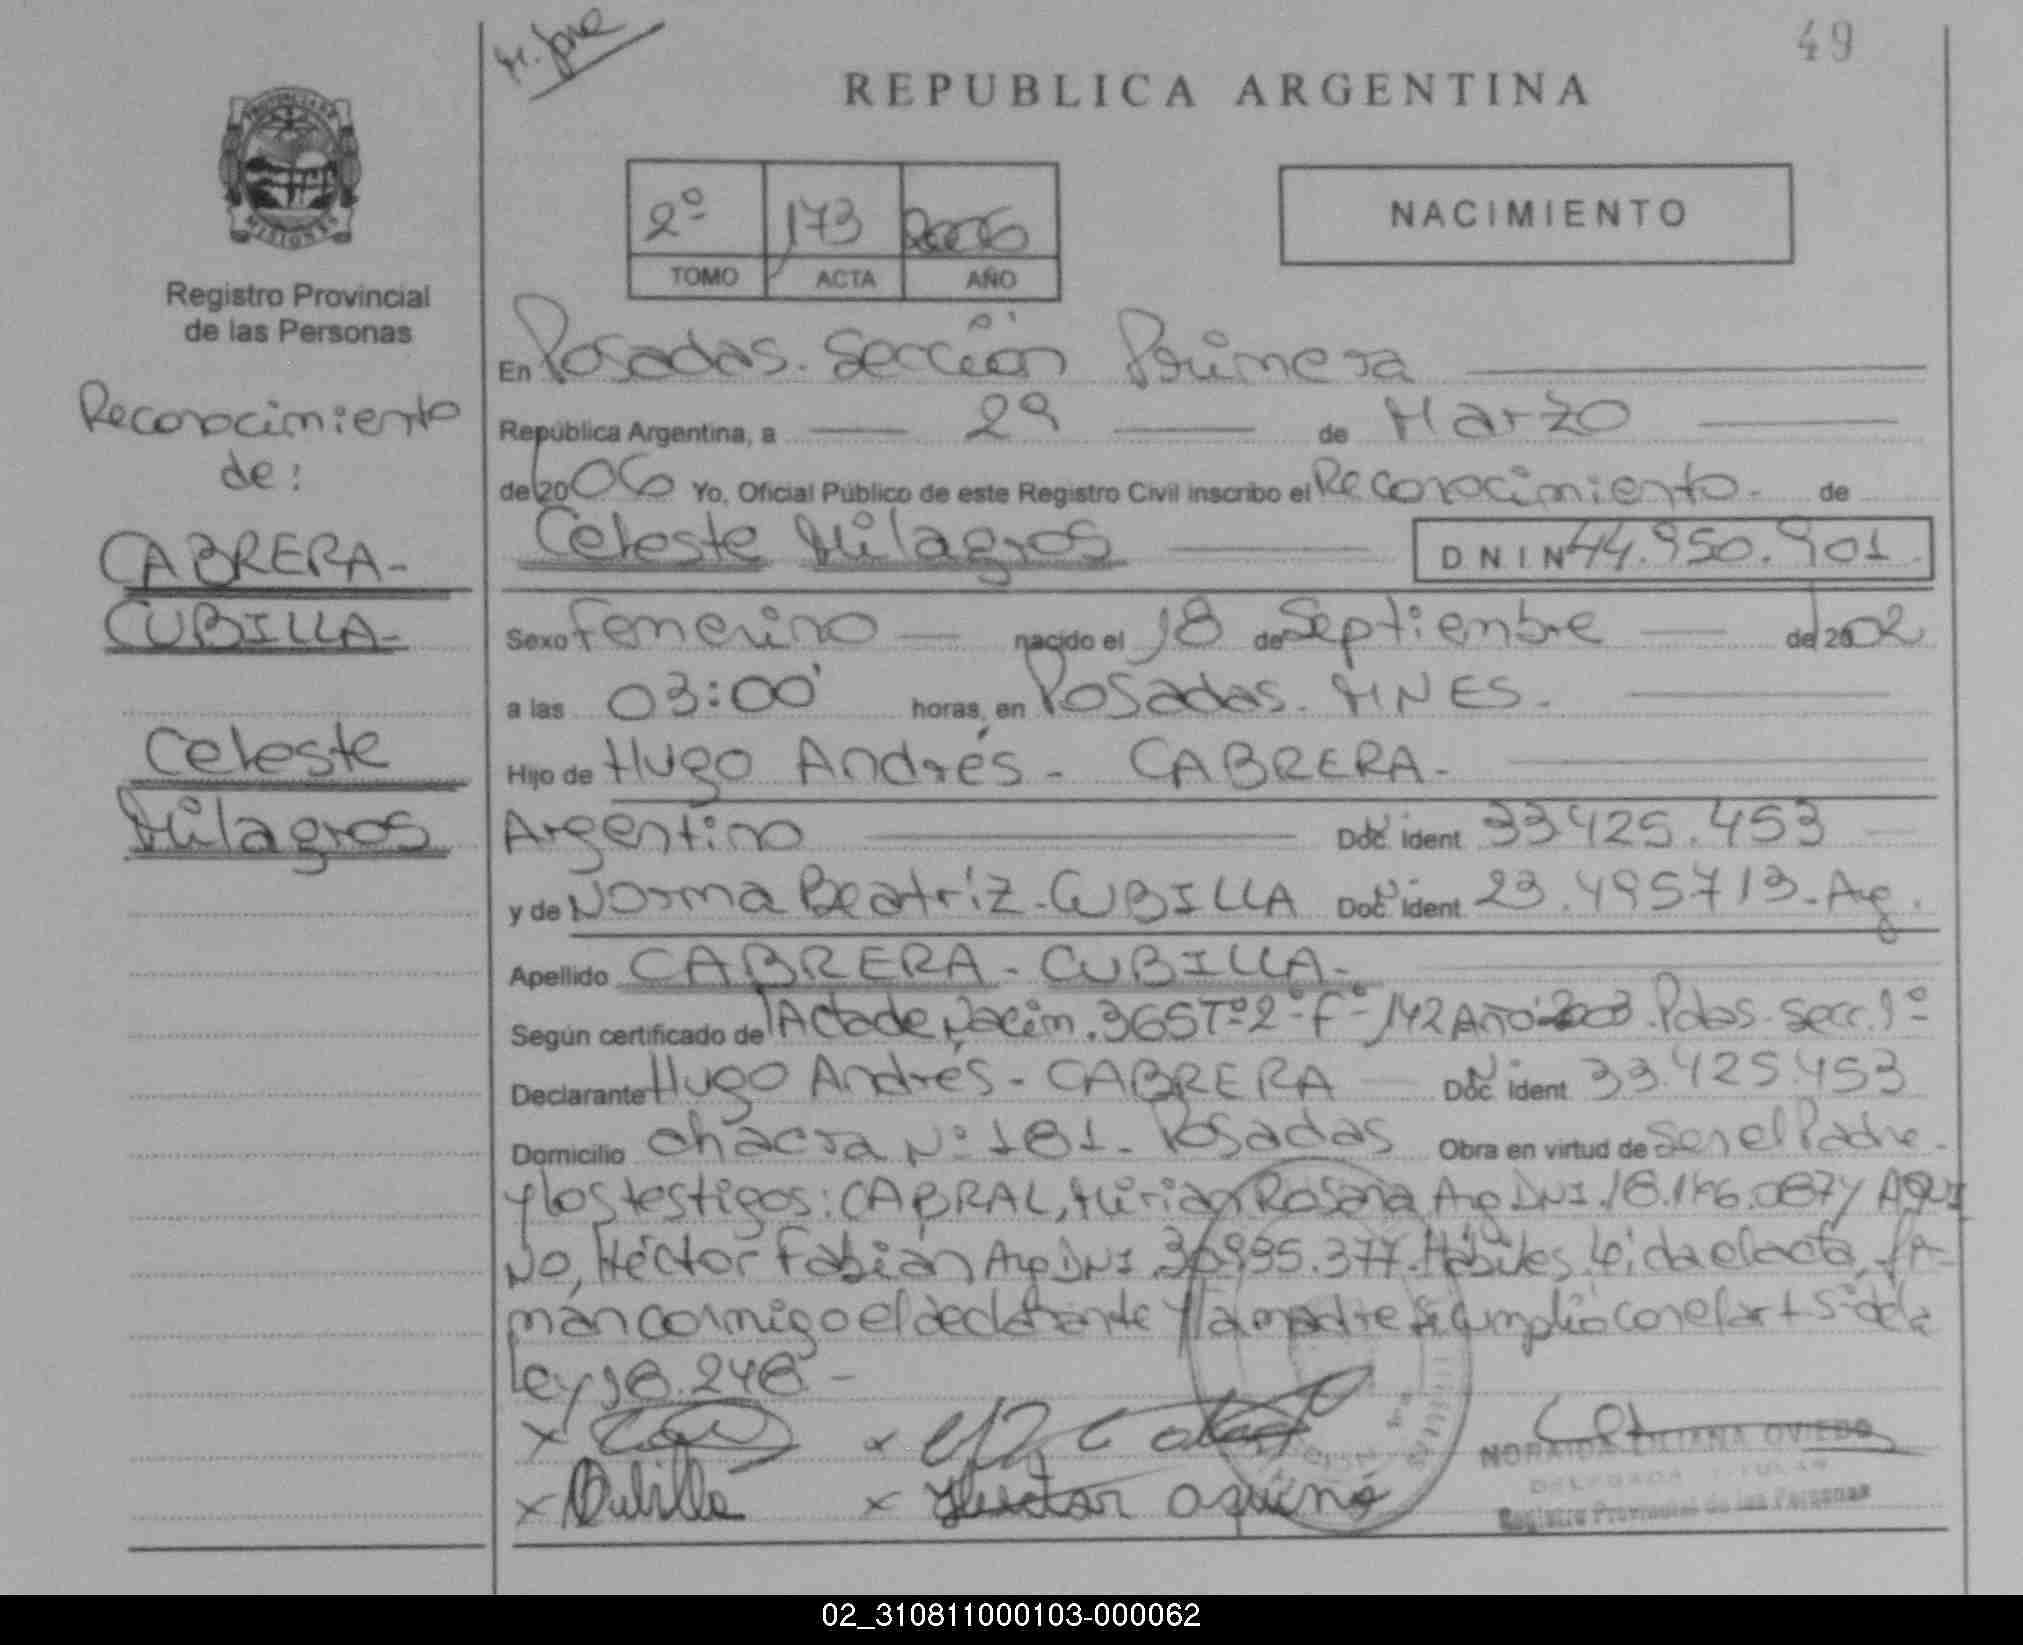 49
REPUBLICA ARGENTINA
PROVINCIA DE
MISIONES
Registro Provincial
de las Personas
2º 173 2006
TOMO ACTA AÑO
NACIMIENTO
Reconocimiento
de:
CABRERA-
CUBILLA-
Celeste
Milagros
En Posadas. Sección Primera
República Argentina, a 29 de Marzo
de 2006 Yo, Oficial Público de este Registro Civil inscribo el Reconocimiento- de
Celeste Milagros D N I N 44.950.901
Sexo Femenino nacido el 18 de Septiembre de 2002
a las 03:00' horas, en Posadas. MNES.
Hijo de Hugo Andrés - CABRERA-
Argentino Doc. ident. 33.425.453
y de Norma Beatríz-CUBILLA Doc. ident. 23.495713-Ag.
Apellido CABRERA-CUBILLA-
Según certificado de Acta de Nacim. 365 Tº2-Fº-142 Año 2003. Pdas-Secc.1º
Declarante Hugo Andrés-CABRERA Doc. ident. 33.425.453
Domicilio chacra Nº 181- Posadas Obra en virtud de Ser el Padre-
y los testigos: CABRAL, Mirian Rosana Arg DNI. 18. .087 y AQUI
NO, Héctor Fabián Arg DNI .377. Hábiles. Leida el acta, fir-
man conmigo el declarante y la madre Se cumplió con el art 5º de la
Ley 18.248-
x x
NORAIDA LILIANA OVIEDO
DELEGADA TITULAR
x Cubilla x Hector aquino
Registro Provincial de las Personas
02_310811000103-000062